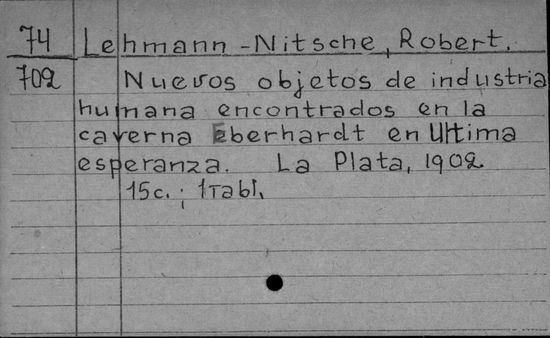 74 Lehmann-Nitsche, Robert.
702 Nuevos objetos de industria
humana encontrados en la
caverna Eberhardt en Ultima
esperanza. La Plata, 1902
15c.; 1tabl.